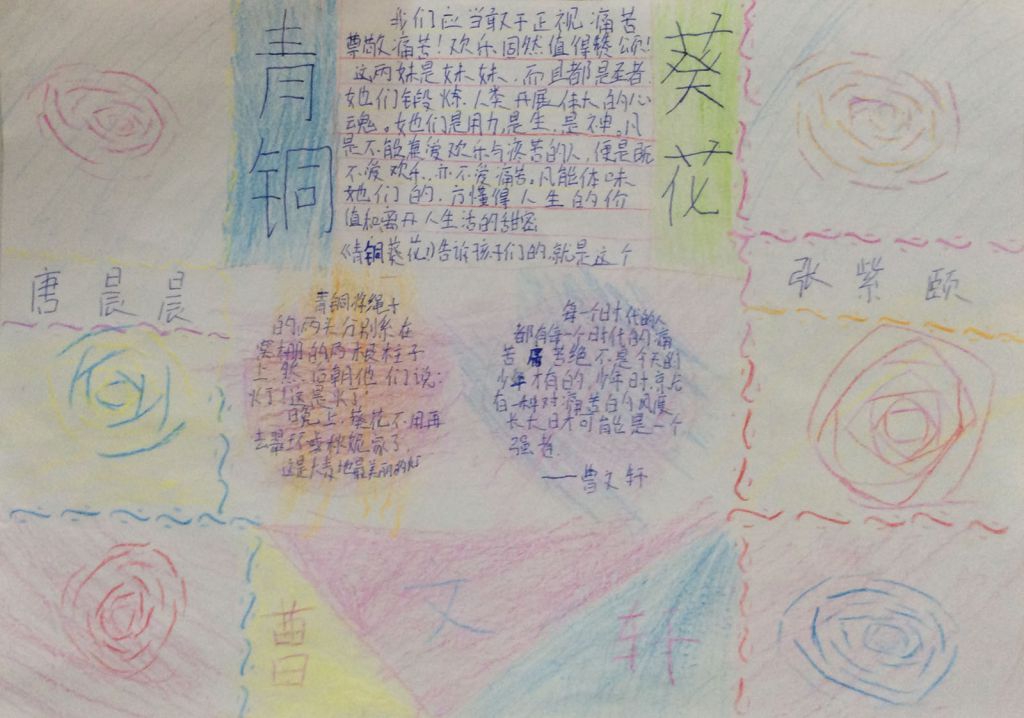 青铜
葵花
我们应当敢于正视痛苦
尊敬痛苦!欢乐固然值得赞颂!
这两妹是妹妹,而且都是圣者.
她们锻炼人类开展伟大的心
魂。她们是力,是生,是神。凡
是不能兼爱欢乐与疼苦的人,便是既
不爱欢乐,亦不爱痛苦。凡能体味
她们的,方懂得人生的价
值和离开人生活的甜密
《青铜葵花》告诉孩子们的,就是这个
唐晨晨
张紫颐
青铜将绳子
的两头分别系在
窝棚的两根柱子
上,然后朝他们说:
灯!这是灯!
一晚上,葵花不用再
去翠环或秋妮家了
这是大麦地最美丽的灯
每一个时代的人
都有每一个时代的痛
苦,苦绝不是今天的
少年才有的,少年时,就
有一种对痛苦的风度
长大时才可能是一个
强者.
——曹文轩
曹
文
轩